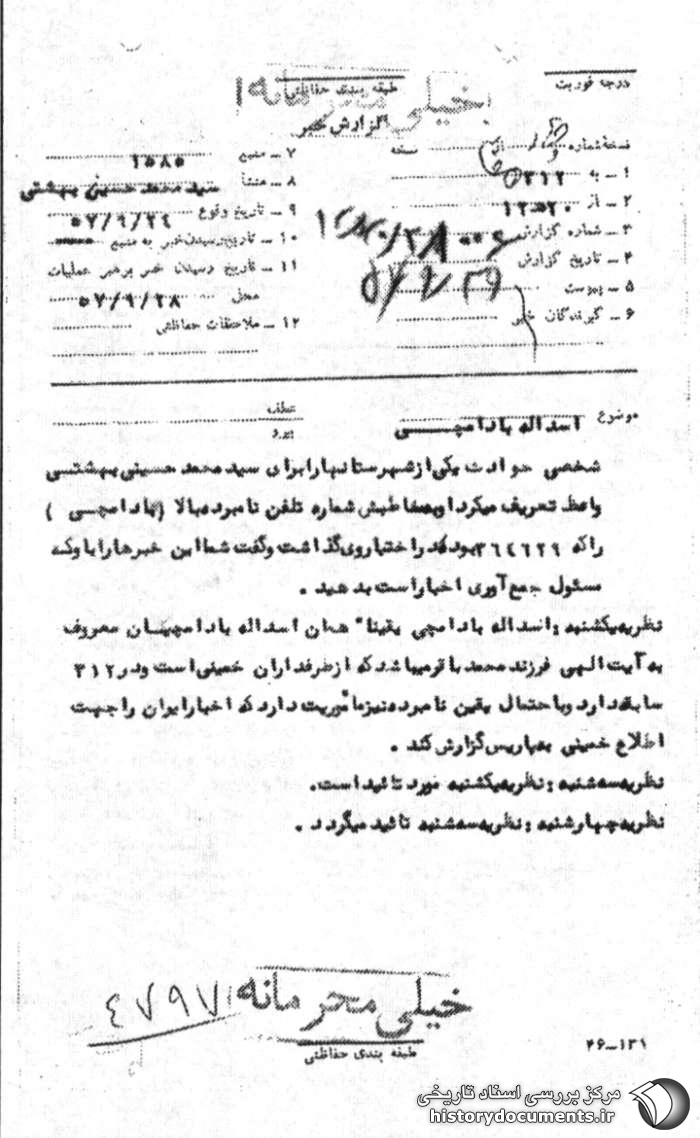 درجه فوریت
طبقه بندی حفاظتی
خیلی محرمانه
گزارش خبر
نسخه شماره از نسخه
۱ ــ به ۳۱۲
۲ ــ از ۱۲۵۲۰
۳ ــ شماره گزارش
۴ ــ تاریخ گزارش
۵ ــ پیوست
۶ ــ گیرندگان خبر
۷ ــ منبع ۱۵۸۵
۸ ــ منشأ سید محمد حسینی بهشتی
۹ ــ تاریخ وقوع ۵۷/۹/۲۴
۱۰ ــ تاریخ رسیدن خبر به منبع
۱۱ ــ تاریخ رسیدن خبر برهبر عملیات
محل ۵۷/۹/۲۸
۱۲ ــ ملاحظات حفاظتی
موضوع اسداله بادامچی
عطف
پیرو
شخصی حوادث یکی از شهرستانها را برای سید محمد حسینی بهشتی
واعظ تعریف میکرد او بمخاطبش شماره تلفن نامبرده بالا (بادامچی)
را که ۳۶۴۶۲۹ بود در اختیار وی گذاشت و گفت شما این خبرها را با و که
مسئول جمع آوری اخبار است بدهید .
نظریه یکشنبه : اسداله بادامچی یقیناً همان اسداله بادامچیان معروف
به آیت الهی فرزند محمد باقر میباشد که از طرفداران خمینی است و در ۳۱۲
سابقه دارد و با حتمال یقین نامبرده نیز مأموریت دارد که اخبار ایران را جهت
اطلاع خمینی بپاریس گزارش کند .
نظریه سه شنبه : نظریه یکشنبه مورد تائید است.
نظریه چهارشنبه : نظریه سه شنبه تائید میگردد .
خیلی محرمانه
۴۷۹۷
طبقه بندی حفاظتی
۴۶-۱۳۱
مرکز بررسی اسناد تاریخی
historydocuments.ir